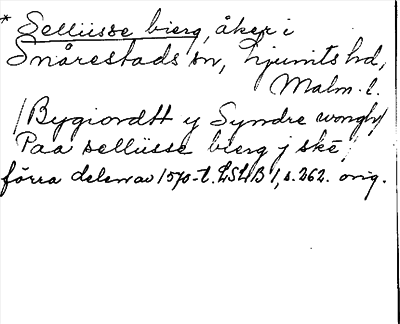 * Sellüsse bierg, åker i
Snårestads sn, Ljunits hd,
Malm. l.
/Bygiordtt y Syndre wongh/
Paa sellüsse bierg j ske,
förra delen av 1570-t. LSLB 1, s. 262. orig.